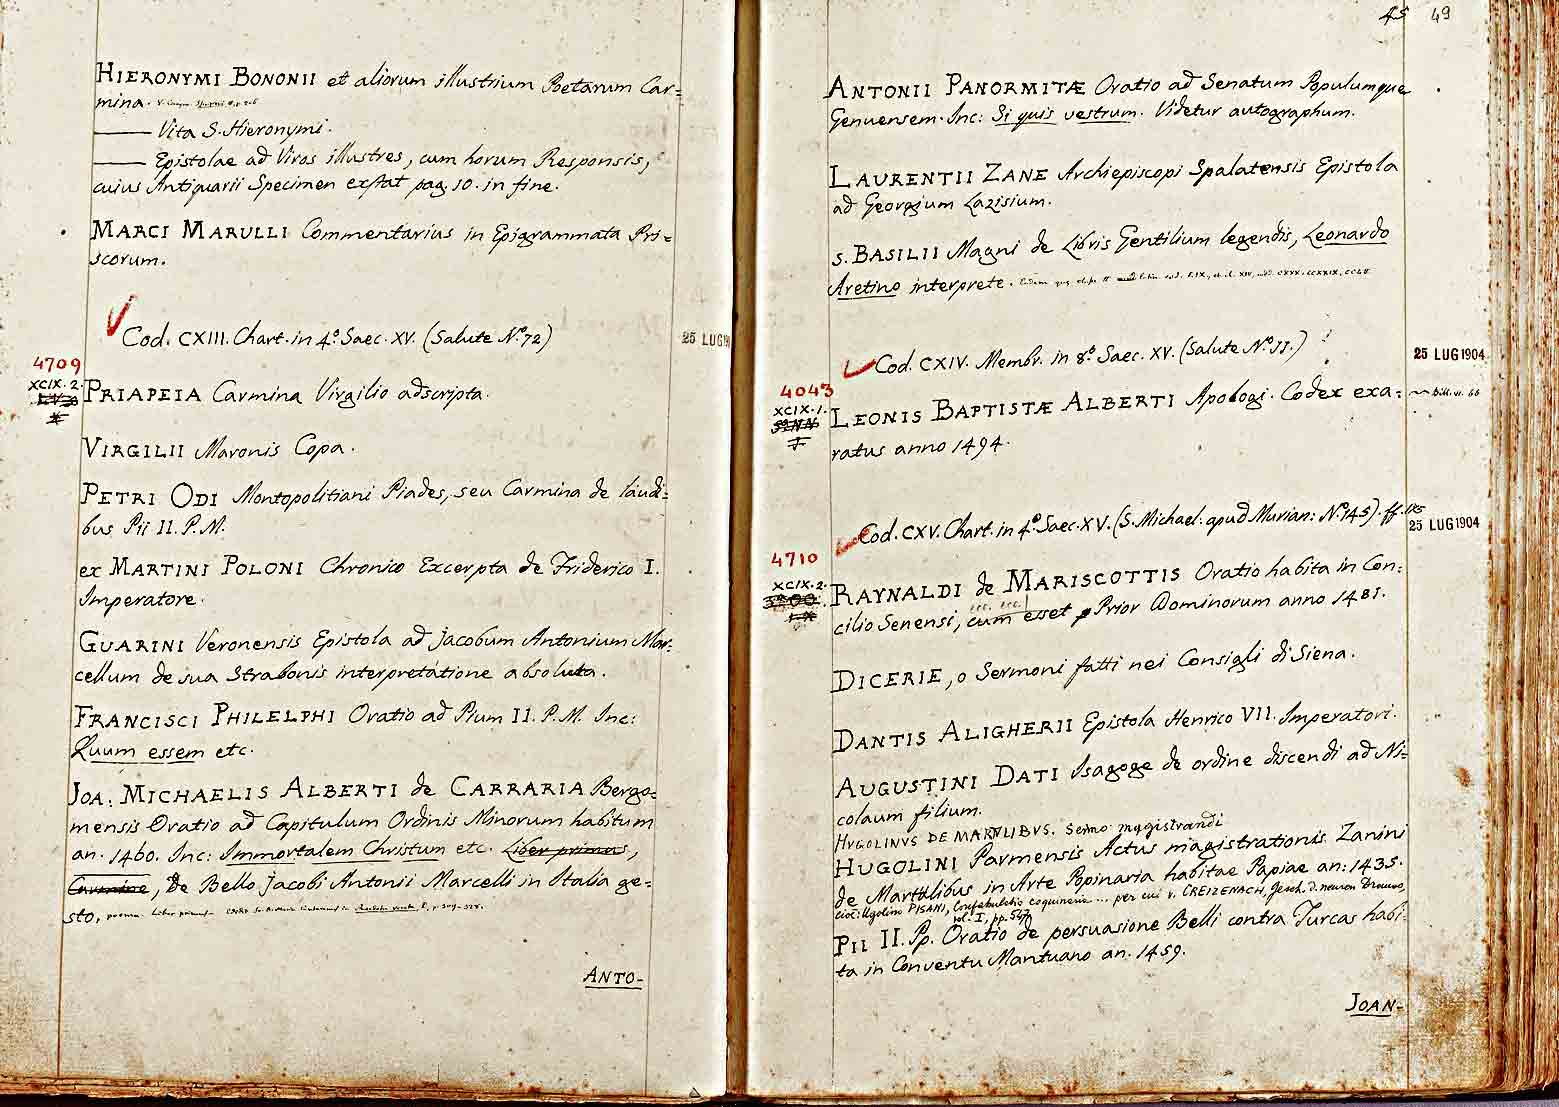 HIERONYMI BONONII et aliorum illustrium Poetarum Car=
mina.
——— Vita S. Hieronymi.
——— Epistolae ad Viros illustres, cum horum Responsis,
cuius Antiquarii Specimen exstat pag. 10. in fine.
MARCI MARULLI Commentarius in Epigrammata Pri=
scorum.
Cod. CXIII. Chart. in 4.º Saec. XV. (Salute Nº. 72)
25 LUG 19
4709
XCIX. 2.
PRIAPEIA Carmina Virgilio adscripta.
VIRGILII Maronis Copa.
PETRI ODI Montopolitiani Piades, seu Carmina de laudi=
bus Pii II. P.M.
ex MARTINI POLONI Chronico Excerpta de Friderico I.
Imperatore.
GUARINI Veronensis Epistola ad Jacobum Antonium Mar=
cellum de sua Strabonis interpretatione absoluta.
FRANCISCI PHILELPHI Oratio ad Pium II. P.M. Inc:
Quum essem etc.
JOA: MICHAELIS ALBERTI de CARRARIA Bergo=
mensis Oratio ad Capitulum Ordinis Minorum habitum
an. 1460. Inc: Immortalem Christum etc. Liber primus,
Carmine, De Bello Jacobi Antonii Marcelli in Italia ge=
sto.
ANTO-
45 49
ANTONII PANORMITÆ Oratio ad Senatum Populumque
Genuensem. Inc: Si quis vestrum. Videtur autographum.
LAURENTII ZANE Archiepiscopi Spalatensis Epistola
ad Georgium Lazisium.
S. BASILII Magni de Libris Gentilium legendis, Leonardo
Aretino interprete.
Cod. CXIV. Membr. in 8.º Saec. XV. (Salute Nº. II.)
25 LUG 1904
4043
XCIX. 1.
LEONIS BAPTISTÆ ALBERTI Apologi. Codex exa=
ratus anno 1494.
Cod. CXV. Chart. in 4.º Saec. XV. (S. Michael. apud Murian: Nº. 145). ff. 115
25 LUG 1904
4710
XCIX. 2.
RAYNALDI de MARISCOTTIS Oratio habita in Con=
cilio Senensi, cum esset Prior Dominorum anno 1481.
DICERIE, o Sermoni fatti nei Consigli di Siena.
DANTIS ALIGHERII Epistola Henrico VII. Imperatori.
AUGUSTINI DATI Isagoge de ordine discendi ad Ni=
colaum filium.
HUGOLINUS DE MARTLIBUS. Sermo magistrandi
HUGOLINI Parmensis Actus magistrationis Zanini
de Martalibus in Arte Popinaria habitae Papiae an: 1435.
cioè: Ugolino PISANI, Confabulatio coquinaria ... per cui v. CREIZENACH, Gesch. d. neueren Dramas,
vol. I, pp. 547
PII II. Pp. Oratio de persuasione Belli contra Turcas habi=
ta in Conventu Mantuano an. 1459.
JOAN-